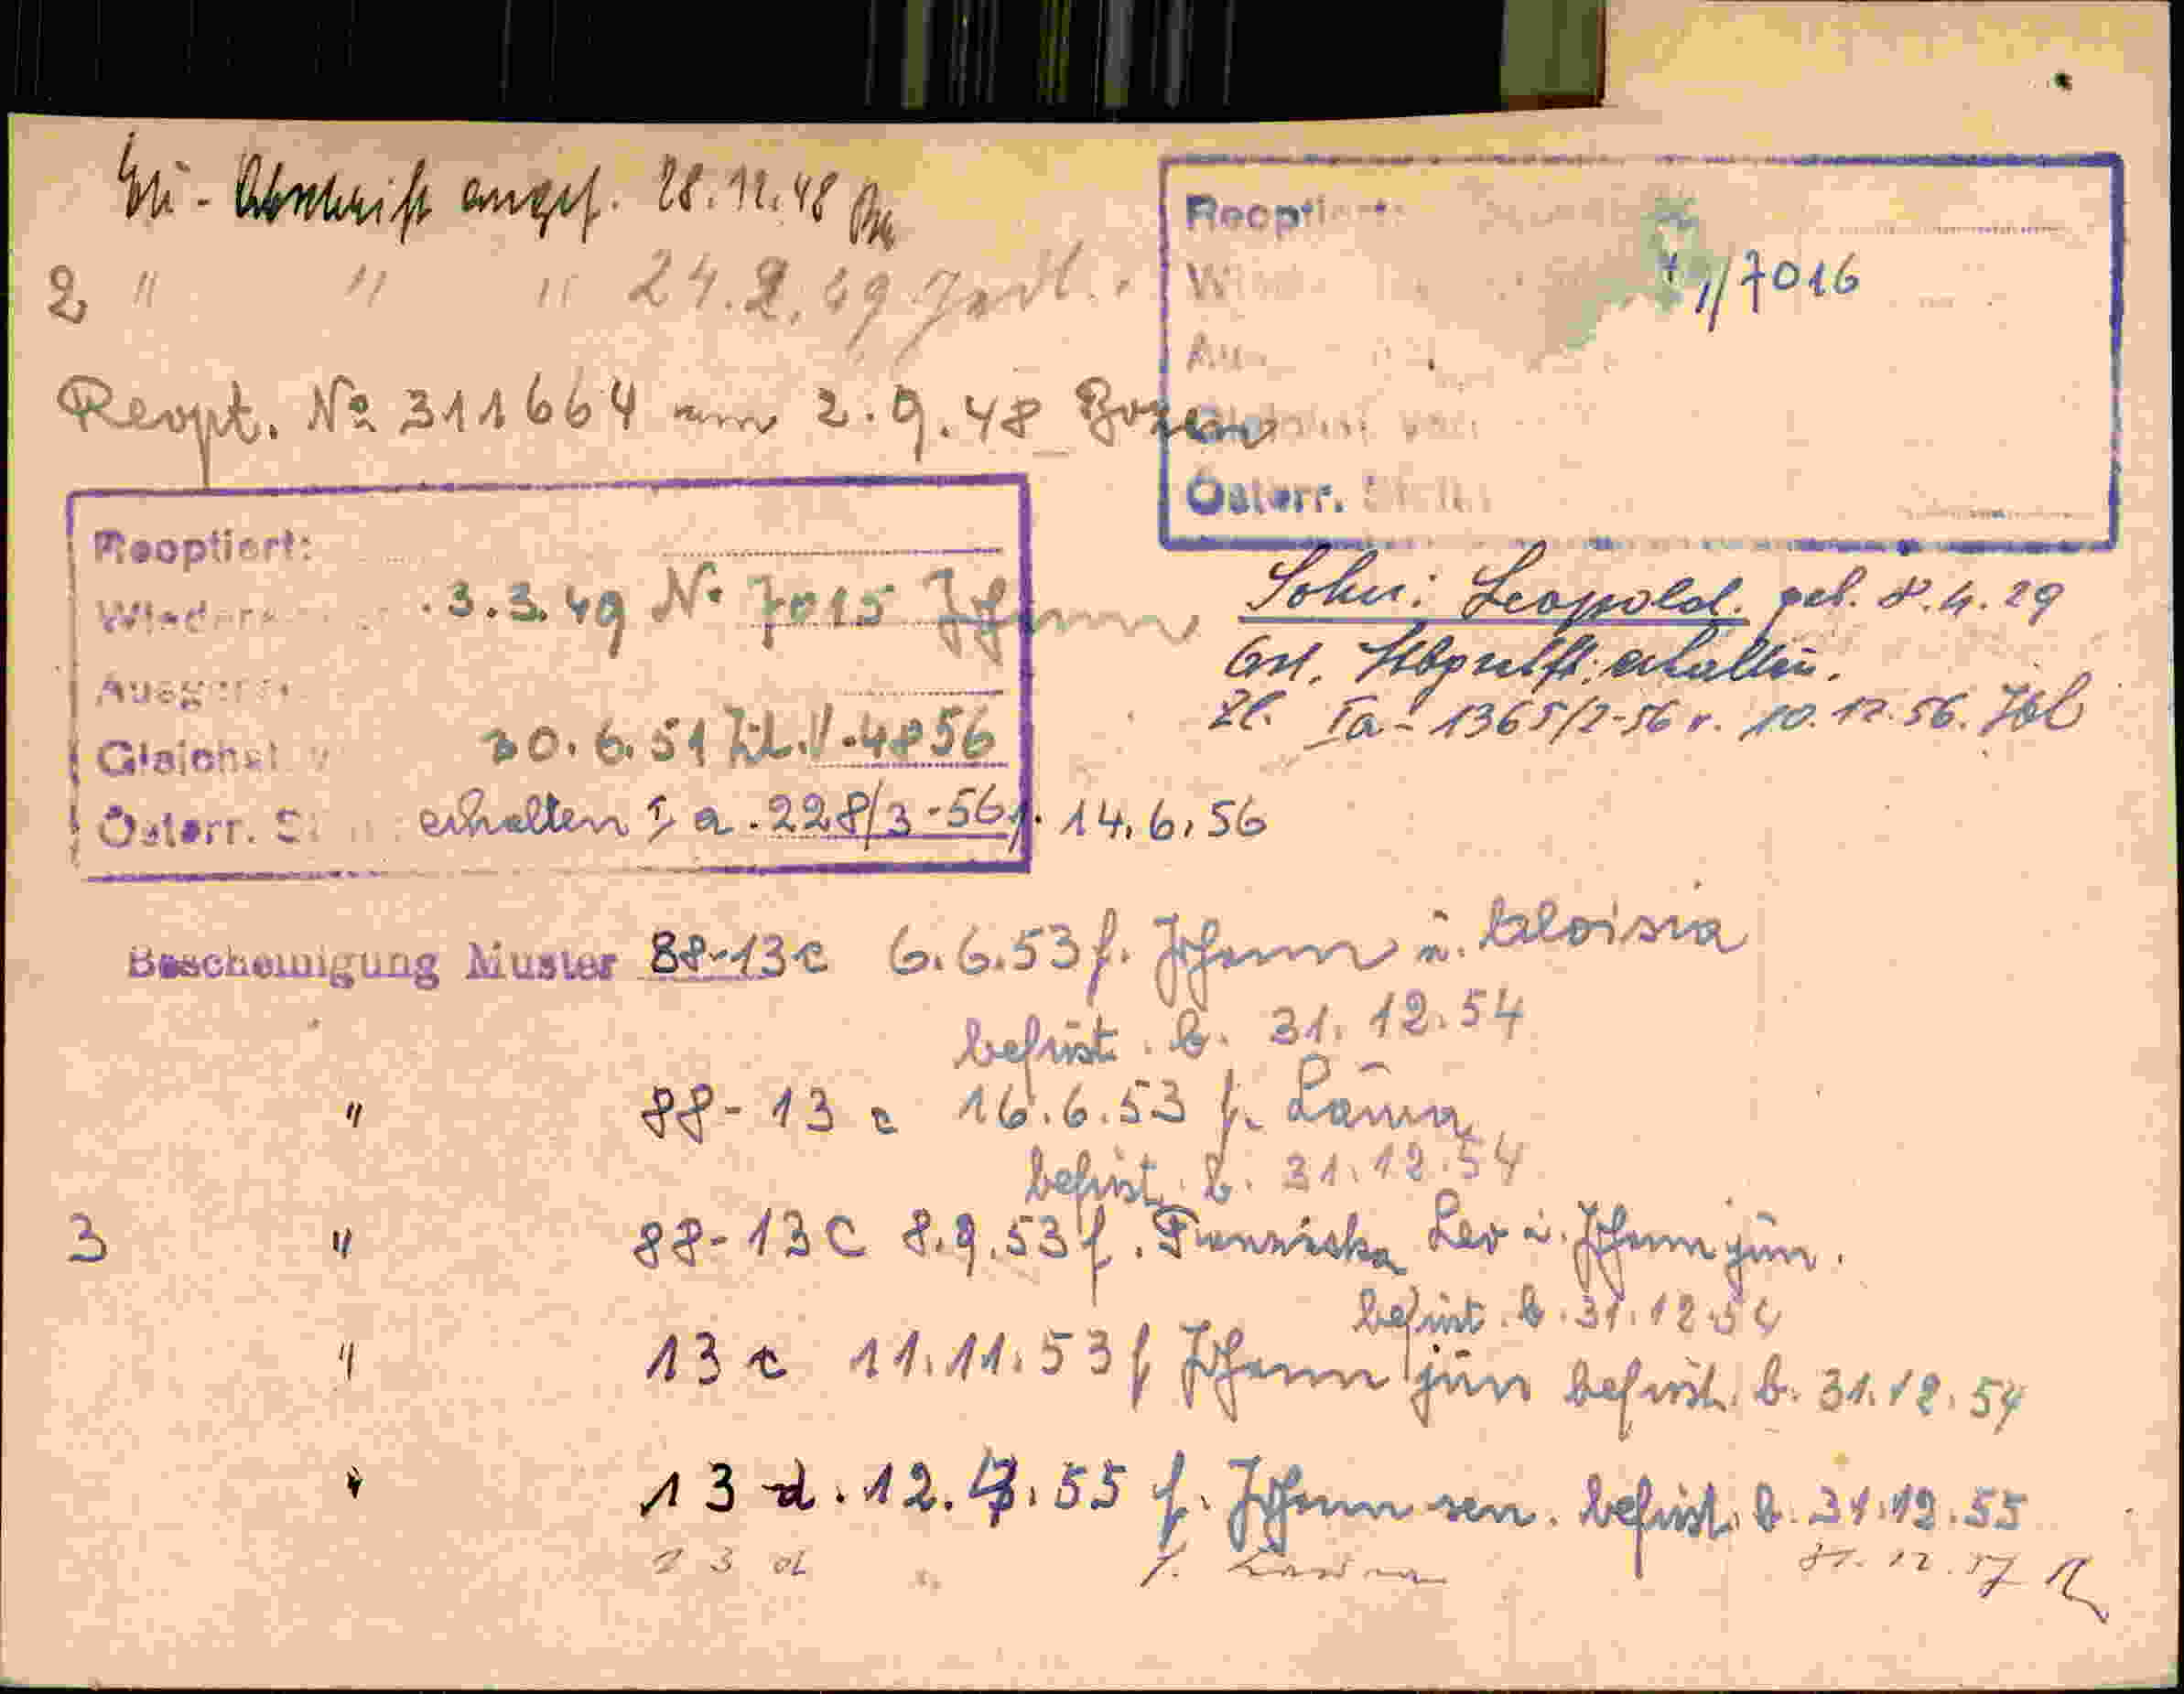 Abschrift angef. 28.12.48
2 " " " 24.2.49
Reopt. No 311664 am 2.9.48 Bozen
Reoptiert:
// 7016
Österr.
Reoptiert:
3.3.49 No 7015 Johann
30.6.51 Zl. V.-4856
Österr. erhalten I a. 228/3-56 v. 14.6.56
Sohn: Leopold. geb. 8.4.29
erhalten.
Zl. Ia - 1365/2-56 v. 10.12.56.
Bescheinigung Muster 88-13c 6.6.53 f. Johann u. Aloisia
befrist. b. 31.12.54
" 88-13c 16.6.53 f. Laura
befrist. b. 31.12.54
3 " 88-13c 8.9.53 f. Franziska Leo u. Johann jun.
befrist. b. 31.12.54
" 13c 11.11.53 f Johann jun befrist. b. 31.12.54
" 13 d. 12. .55 f. Johann sen. befrist. b. 31.12.55
13 d f. Laura 31.12.57